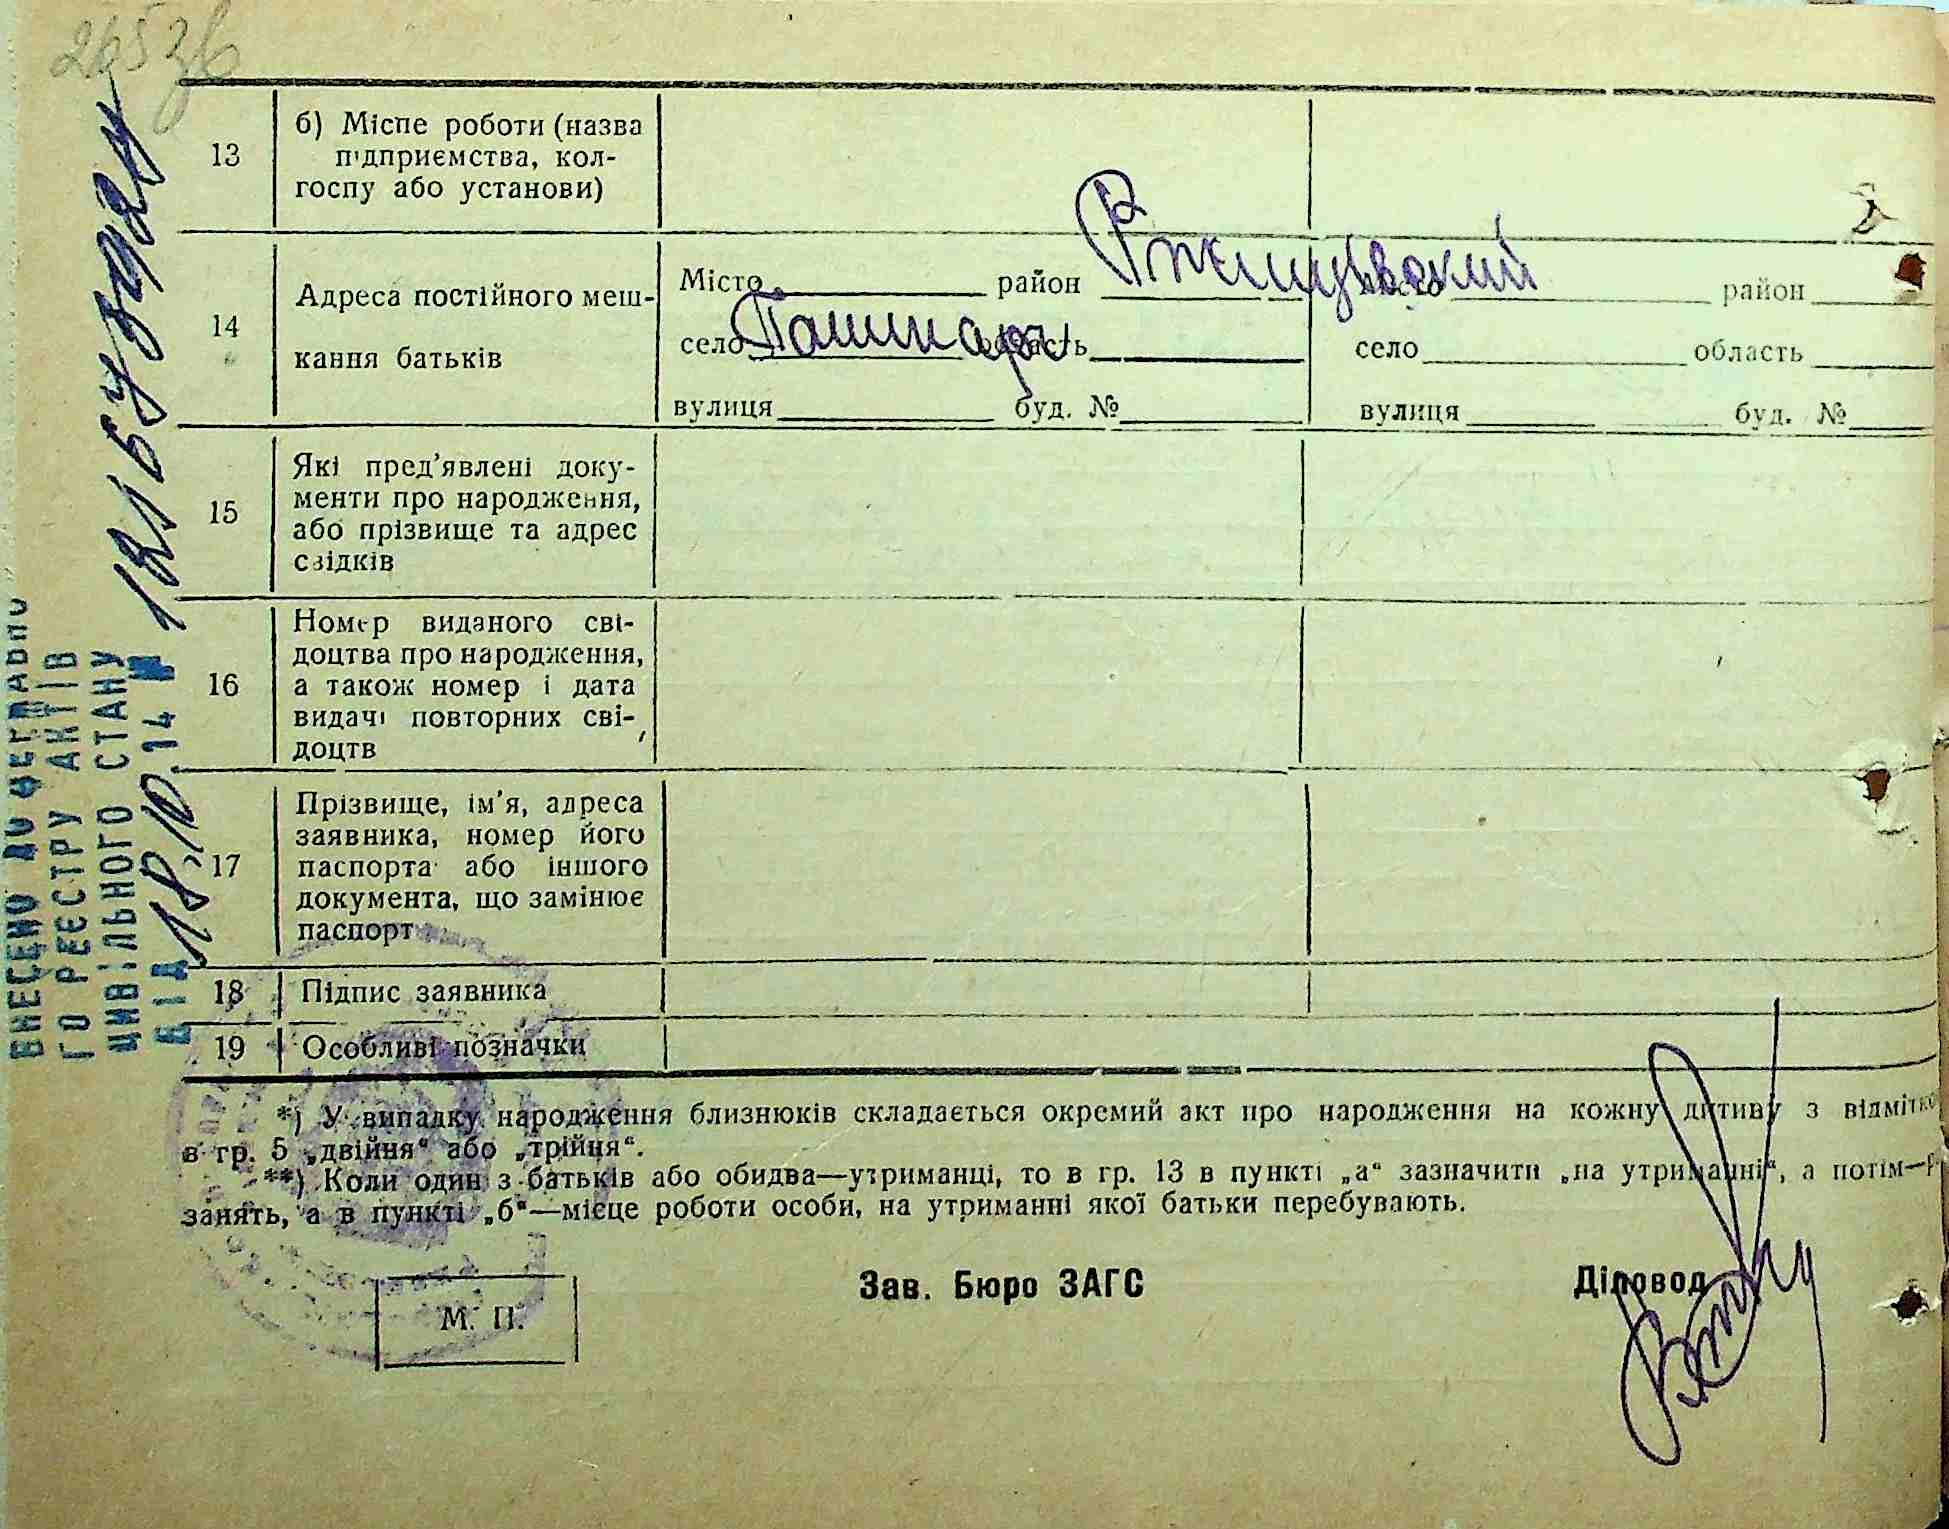 265зв
13
б) Місце роботи (назва
підприємства, кол-
госпу або установи)
14
Адреса постійного меш-
кання батьків
Місто район
село область
вулиця буд. №
місто район
село область
вулиця буд. №
15
Які пред’явлені доку-
менти про народження,
або прізвище та адрес
свідків
16
Номер виданого сві-
доцтва про народження,
а також номер і дата
видачі повторних сві-
доцтв
17
Прізвище, ім’я, адреса
заявника, номер його
паспорта або іншого
документа, що замінює
паспорт
18
Підпис заявника
19
Особливі позначки
*) У випадку народження близнюків складається окремий акт про народження на кожну дитину з відмітко
в гр. 5 „двійня“ або „трійця“.
**) Коли один з батьків або обидва—утриманці, то в гр. 13 в пункті „а“ зазначити „на утриманні“, а потім—
занять, а в пункті „б“—місце роботи особи, на утриманні якої батьки перебувають.
Зав. Бюро ЗАГС
Діловод
М. П.
ВНЕСЕНО ДО ДЕРЖАВНО
ГО РЕЄСТРУ АКТІВ
ЦИВІЛЬНОГО СТАНУ
ВІД 18.10.14 №